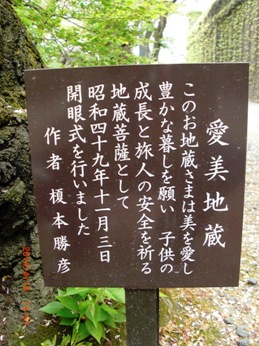 愛美地蔵
このお地蔵さまは美を愛し
豊かな暮しを願い 子供の
成長と旅人の安全を祈る
地蔵菩薩として
昭和四十九年十一月三日
開眼式を行いました
作者 榎本勝彦